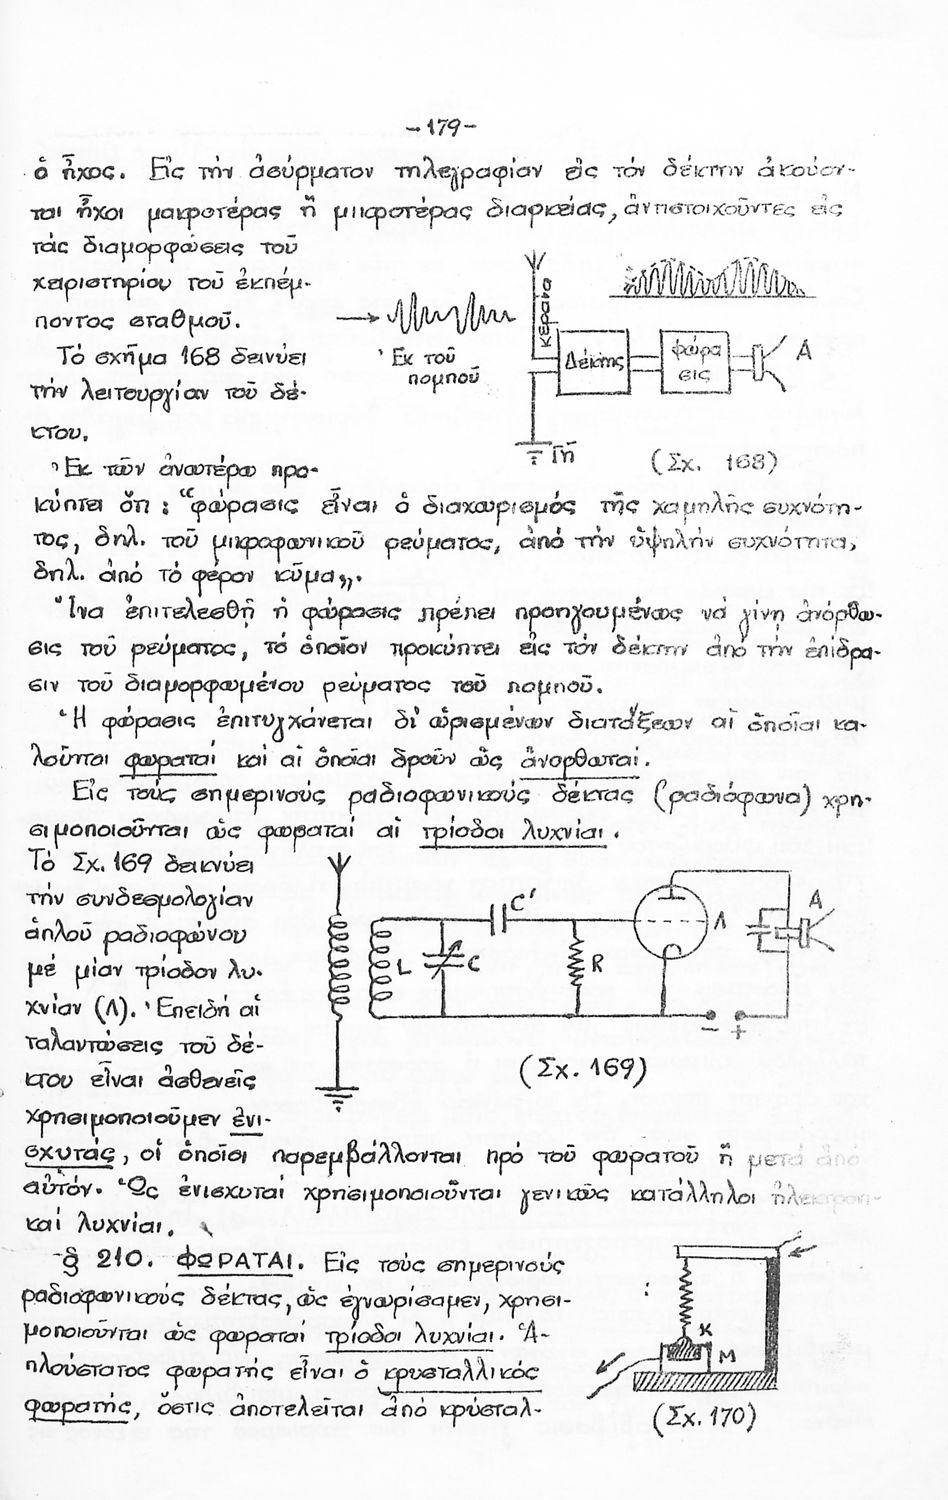 -179-
ὁ ἦχος. Εἰς τήν ἀσύρματον τηλεγραφίαν εἰς τόν δέκτην ἀκούον-
ται ἦχοι μακροτέρας ἤ μικροτέρας διαρκείας, ἀντιστοιχοῦντες εἰς
τάς διαμορφώσεις τοῦ
χειριστηρίου τοῦ ἐκπέμ-
ποντος σταθμοῦ.
Τό σχῆμα 168 δεικνύει
τήν λειτουργίαν τοῦ δέ-
κτου.
Ἐκ τοῦ
πομποῦ
κεραία
Δέκτης
φώρα
σις
Α
Γῆ
(Σχ. 168)
Ἐκ τῶν ἀνωτέρω προ-
κύπτει ὅτι: "φώρασις εἶναι ὁ διαχωρισμός τῆς χαμηλῆς συχνότη-
τος, δηλ. τοῦ μικροφωνικοῦ ρεύματος, ἀπό τήν ὑψηλήν συχνότητα,
δηλ. ἀπό τό φέρον κῦμα".
Ἵνα ἐπιτελεσθῇ ἡ φώρασις πρέπει προηγουμένως νά γίνῃ ἀνόρθω-
σις τοῦ ρεύματος, τό ὁποῖον προκύπτει εἰς τόν δέκτην ἀπό τήν ἐπίδρα-
σιν τοῦ διαμορφωμένου ρεύματος τοῦ πομποῦ.
Ἡ φώρασις ἐπιτυγχάνεται δι' ὡρισμένων διατάξεων αἱ ὁποῖαι κα-
λοῦνται φωραταί καί αἱ ὁποῖαι δροῦν ὡς ἀνορθωταί.
Εἰς τούς σημερινούς ραδιοφωνικούς δέκτας (ραδιόφωνα) χρη-
σιμοποιοῦνται ὡς φωραταί αἱ τρίοδοι λυχνίαι.
Τό Σχ. 169 δεικνύει
τήν συνδεσμολογίαν
ἁπλοῦ ραδιοφώνου
μέ μίαν τρίοδον λυ-
χνίαν (Λ). Ἐπειδή αἱ
ταλαντώσεις τοῦ δέ-
κτου εἶναι ἀσθενεῖς
χρησιμοποιοῦμεν ἐνι-
L
C
C'
R
Λ
Α
- +
(Σχ. 169)
σχυτάς, οἱ ὁποῖοι παρεμβάλλονται πρό τοῦ φωρατοῦ ἤ μετά ἀπό
αὐτόν. Ὡς ἐνισχυταί χρησιμοποιοῦνται γενικῶς κατάλληλοι ἠλεκτρονι-
καί λυχνίαι.
§ 210. ΦΩΡΑΤΑΙ. Εἰς τούς σημερινούς
ραδιοφωνικούς δέκτας, ὡς ἐγνωρίσαμεν, χρησι-
μοποιοῦνται ὡς φωραταί τρίοδοι λυχνίαι. Ἁ-
πλούστατος φωρατής εἶναι ὁ κρυσταλλικός
φωρατής, ὅστις ἀποτελεῖται ἀπό κρύσταλ-
Κ
Μ
(Σχ. 170)